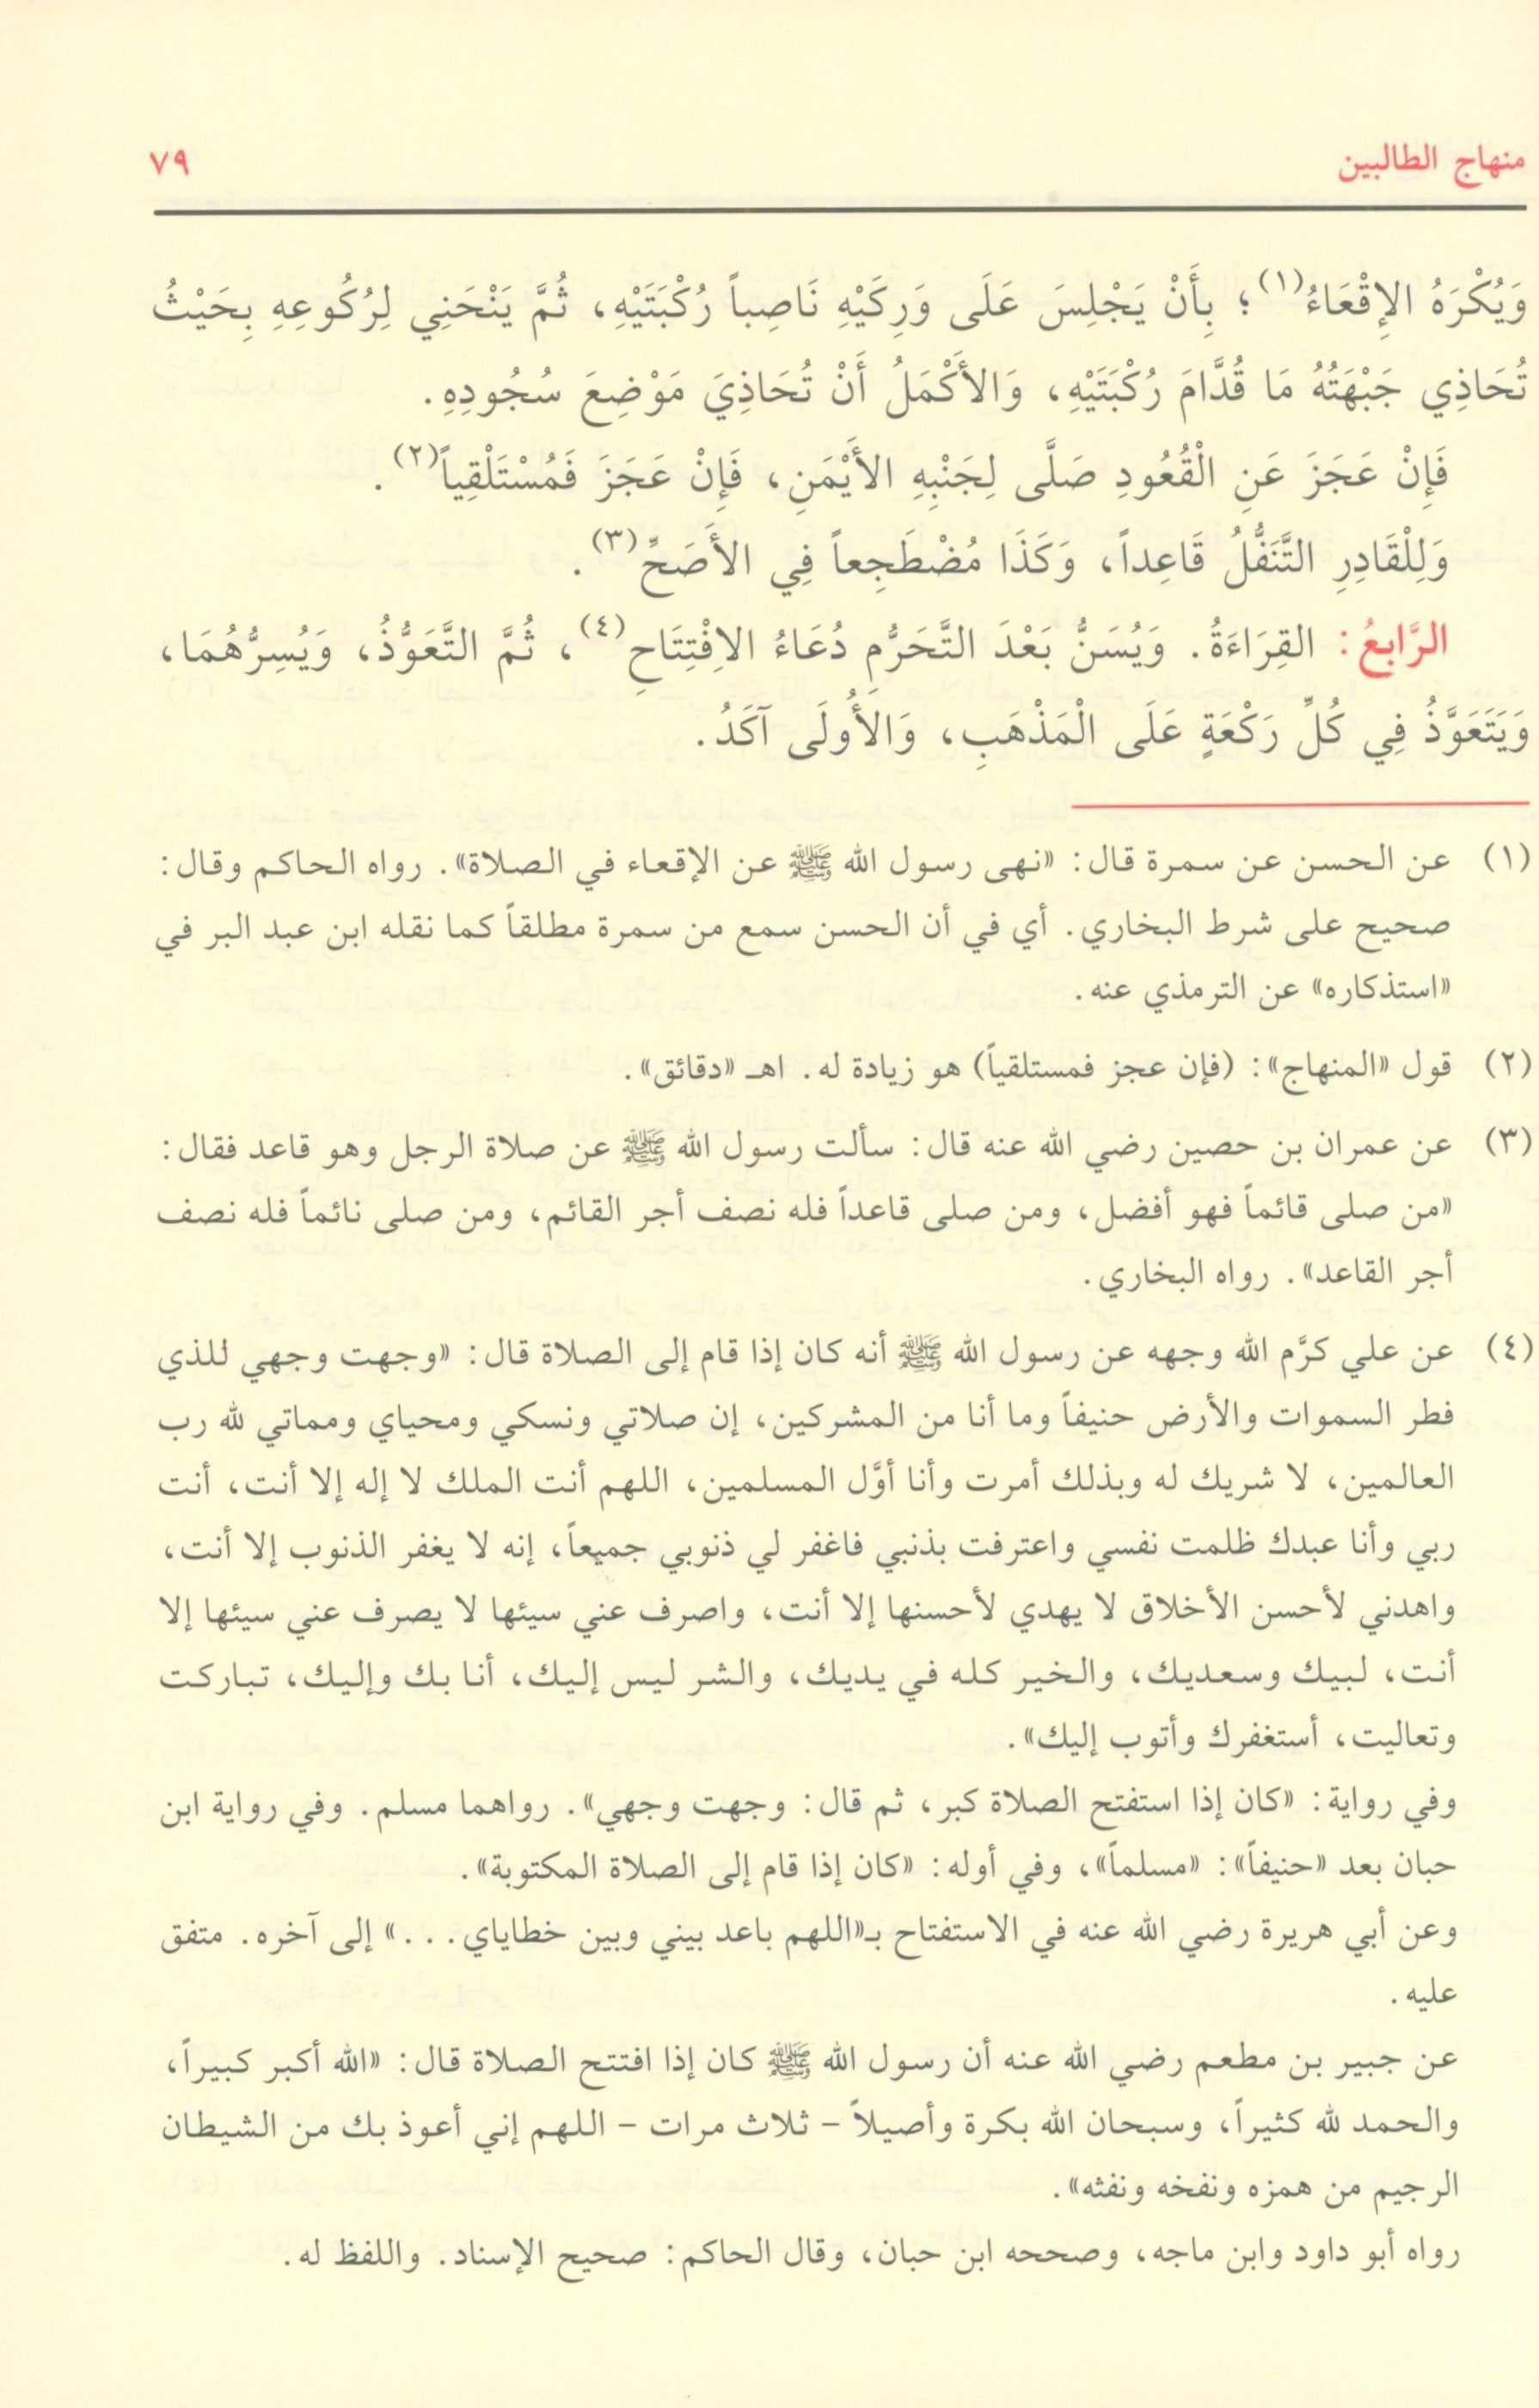 منهاج الطالبين ٧٩
وَيُكْرَهُ الإِقْعَاءُ(١)؛ بِأَنْ يَجْلِسَ عَلَى وَرِكَيْهِ نَاصِباً رُكْبَتَيْهِ، ثُمَّ يَنْحَنِي لِرُكُوعِهِ بِحَيْثُ
تُحَاذِي جَبْهَتُهُ مَا قُدَّامَ رُكْبَتَيْهِ، وَالأَكْمَلُ أَنْ تُحَاذِيَ مَوْضِعَ سُجُودِهِ.
فَإِنْ عَجَزَ عَنِ الْقُعُودِ صَلَّى لِجَنْبِهِ الأَيْمَنِ، فَإِنْ عَجَزَ فَمُسْتَلْقِياً(٢).
وَلِلْقَادِرِ التَّنَفُّلُ قَاعِداً، وَكَذَا مُضْطَجِعاً فِي الأَصَحِّ(٣).
الرَّابعُ: القِرَاءَةُ. وَيُسَنُّ بَعْدَ التَّحَرُّمِ دُعَاءُ الاِفْتِتَاحِ(٤)، ثُمَّ التَّعَوُّذُ، وَيُسِرُّهُمَا،
وَيَتَعَوَّذُ فِي كُلِّ رَكْعَةٍ عَلَى الْمَذْهَبِ، وَالأُولَى آكَدُ.
(١) عن الحسن عن سمرة قال: «نهى رسول الله ﷺ عن الإقعاء في الصلاة». رواه الحاكم وقال:
صحيح على شرط البخاري. أي في أن الحسن سمع من سمرة مطلقاً كما نقله ابن عبد البر في
«استذكاره» عن الترمذي عنه.
(٢) قول «المنهاج»: (فإن عجز فمستلقياً) هو زيادة له. اهـ «دقائق».
(٣) عن عمران بن حصين رضي الله عنه قال: سألت رسول الله ﷺ عن صلاة الرجل وهو قاعد فقال:
«من صلى قائماً فهو أفضل، ومن صلى قاعداً فله نصف أجر القائم، ومن صلى نائماً فله نصف
أجر القاعد». رواه البخاري.
(٤) عن علي كرَّم الله وجهه عن رسول الله ﷺ أنه كان إذا قام إلى الصلاة قال: «وجهت وجهي للذي
فطر السموات والأرض حنيفاً وما أنا من المشركين، إن صلاتي ونسكي ومحياي ومماتي لله رب
العالمين، لا شريك له وبذلك أمرت وأنا أوَّل المسلمين، اللهم أنت الملك لا إله إلا أنت، أنت
ربي وأنا عبدك ظلمت نفسي واعترفت بذنبي فاغفر لي ذنوبي جميعاً، إنه لا يغفر الذنوب إلا أنت،
واهدني لأحسن الأخلاق لا يهدي لأحسنها إلا أنت، واصرف عني سيئها لا يصرف عني سيئها إلا
أنت، لبيك وسعديك، والخير كله في يديك، والشر ليس إليك، أنا بك وإليك، تباركت
وتعاليت، أستغفرك وأتوب إليك».
وفي رواية: «كان إذا استفتح الصلاة كبر، ثم قال: وجهت وجهي». رواهما مسلم. وفي رواية ابن
حبان بعد «حنيفاً»: «مسلماً»، وفي أوله: «كان إذا قام إلى الصلاة المكتوبة».
وعن أبي هريرة رضي الله عنه في الاستفتاح بـ«اللهم باعد بيني وبين خطاياي. . .» إلى آخره. متفق
عليه.
عن جبير بن مطعم رضي الله عنه أن رسول الله ﷺ كان إذا افتتح الصلاة قال: «الله أكبر كبيراً،
والحمد لله كثيراً، وسبحان الله بكرة وأصيلاً – ثلاث مرات – اللهم إني أعوذ بك من الشيطان
الرجيم من همزه ونفخه ونفثه».
رواه أبو داود وابن ماجه، وصححه ابن حبان، وقال الحاكم: صحيح الإسناد. واللفظ له.